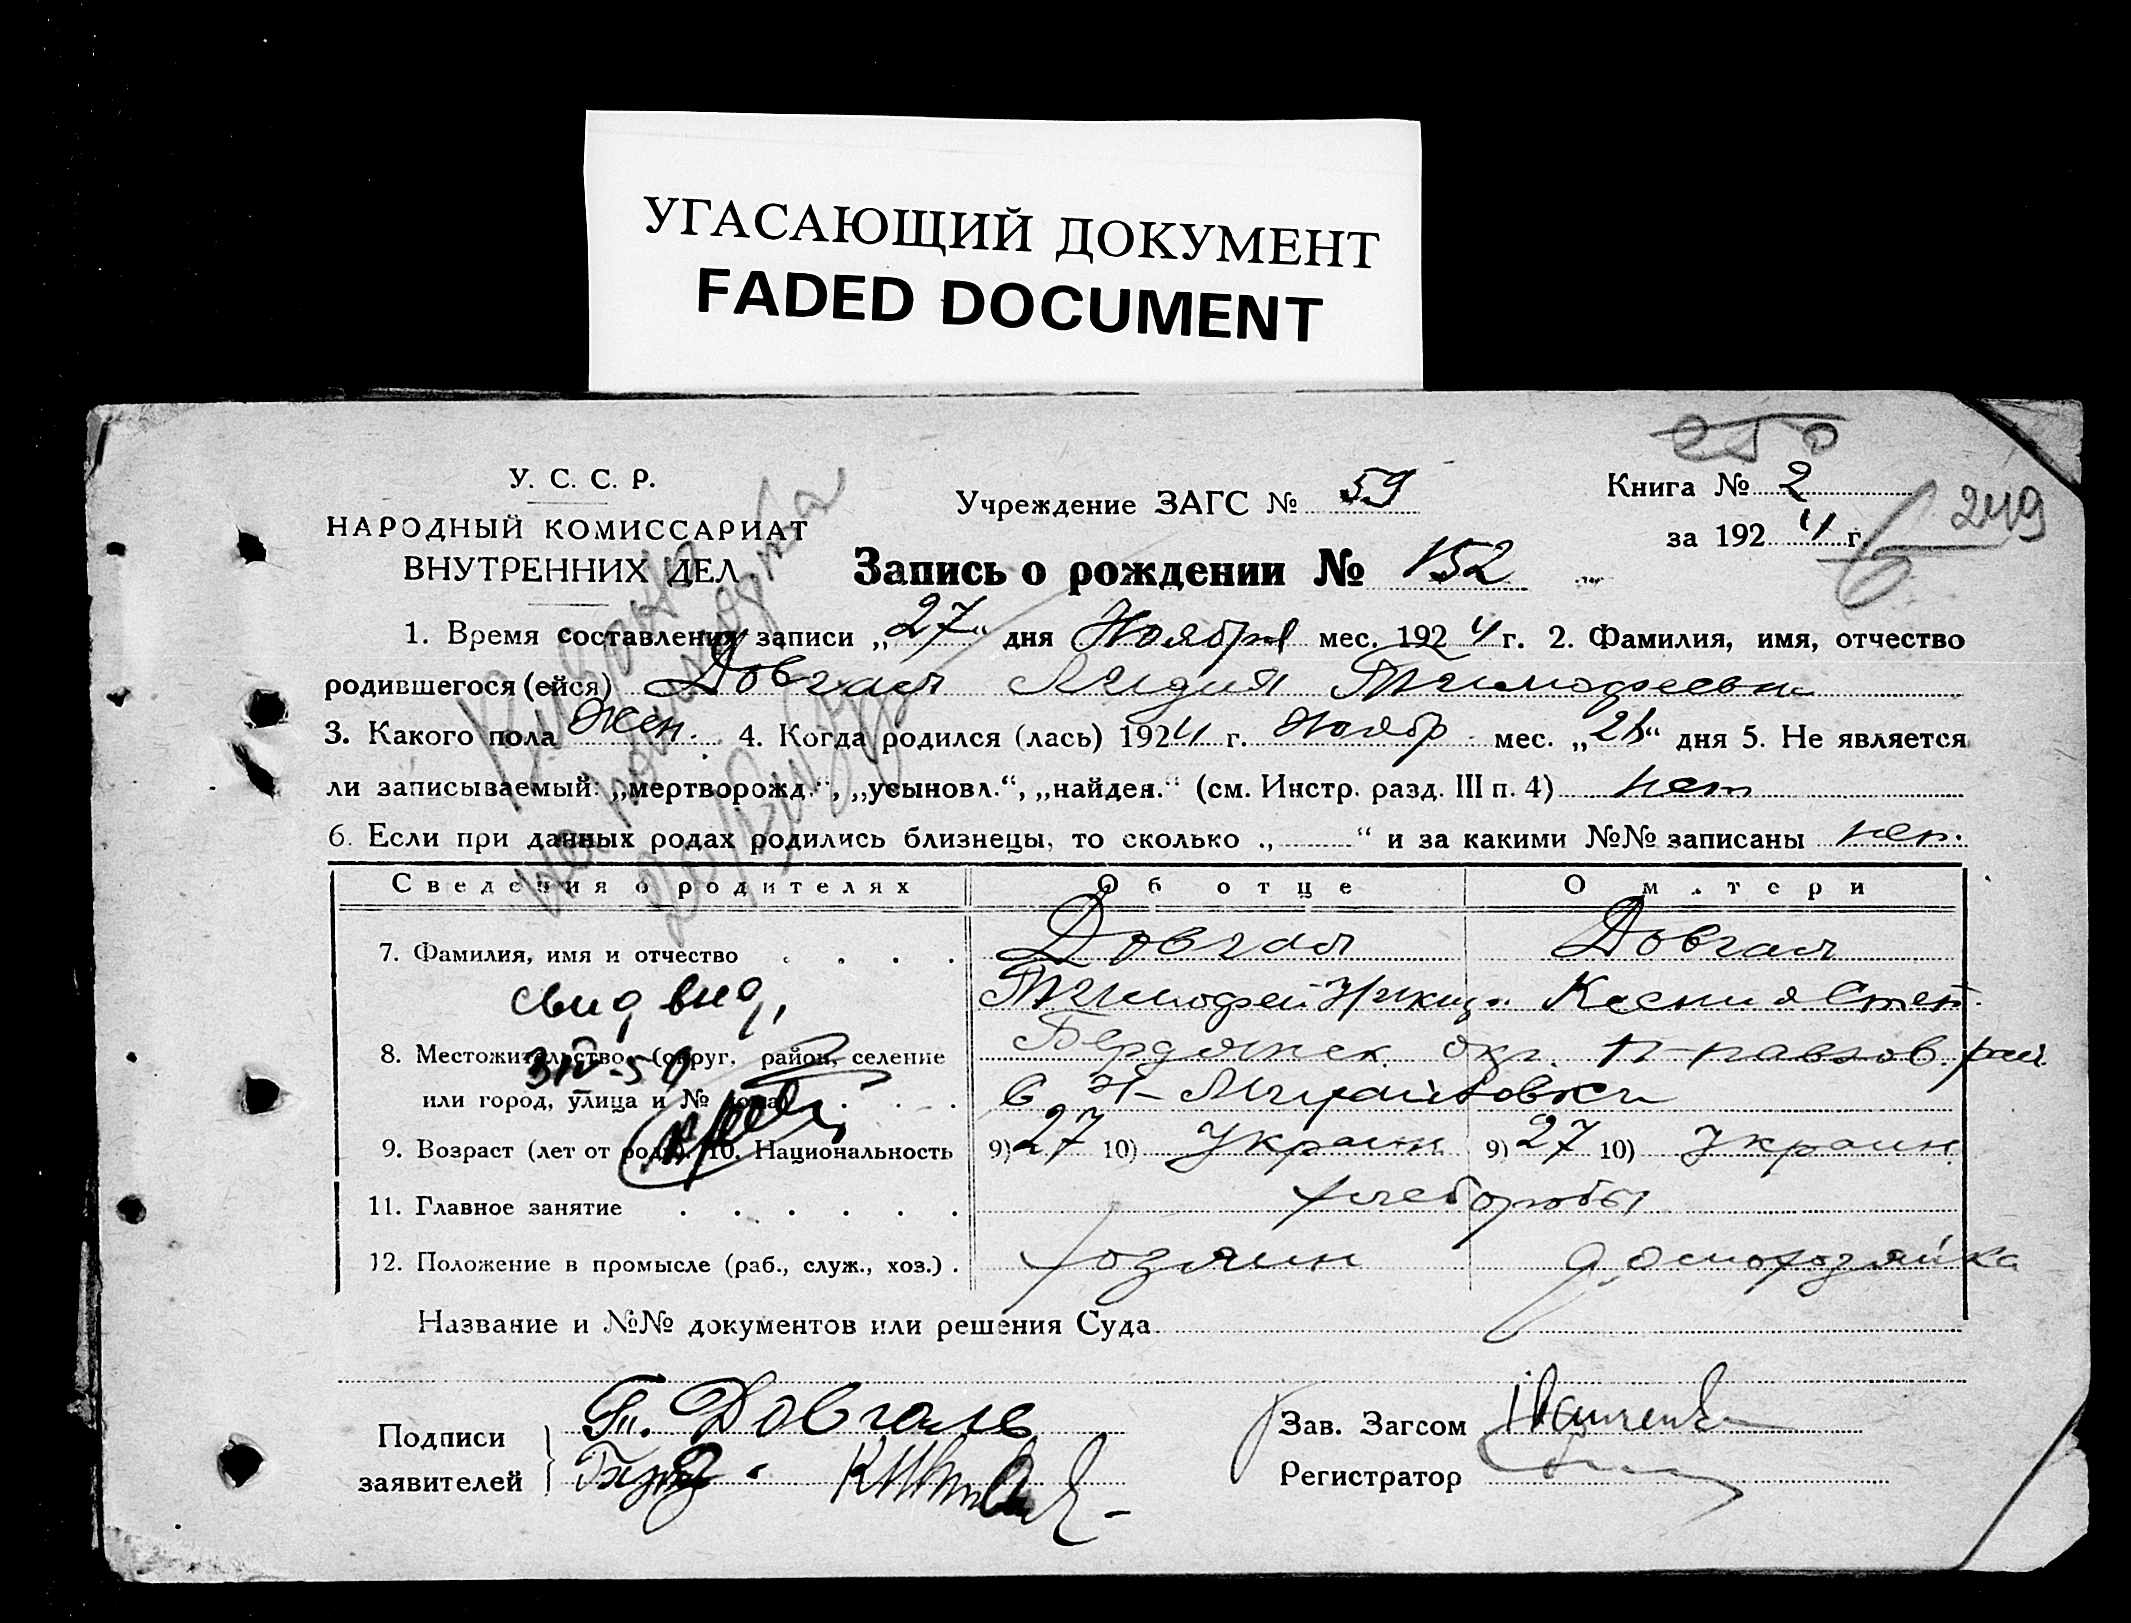 УГАСАЮЩИЙ ДОКУМЕНТ
FADED DOCUMENT
У. С. С. Р.
НАРОДНЫЙ КОМИССАРИАТ
ВНУТРЕННИХ ДЕЛ
Учреждение ЗАГС № 59
Книга № 2
за 1924 г.
249
Запись о рождении № 152
1. Время составления записи „27“ дня Ноября мес. 1924 г. 2. Фамилия, имя, отчество
родившегося (ейся) Довгаль Лидия Тимофеевн
3. Какого пола жен. 4. Когда родился (лась) 1924 г. Ноябр мес. „ “ дня 5. Не является
ли записываемый: „мертворожд.“, „усыновл.“, „найден.“ (см. Инстр. разд. III п. 4) нет
6. Если при данных родах родились близнецы, то сколько „ “ и за какими №№ записаны нет.
Сведения о родителях Об отце О матери
7. Фамилия, имя и отчество Довгаль Довгаль
Тимофей Никиф. Ксения Степ.
свид выд,
8. Местожительство (округ, район, селение Бердянск окр. рай.
или город, улица и № дома) с Н-Михайловки
9. Возраст (лет от роду). 10. Национальность 9) 27 10) Украин 9) 27 10) Украин
11. Главное занятие хлеборобы
12. Положение в промысле (раб., служ., хоз.) хозяин домохозяйка
Название и №№ документов или решения Суда
Подписи заявителей Т. Довгаль
Зав. Загсом Иванченко
Регистратор